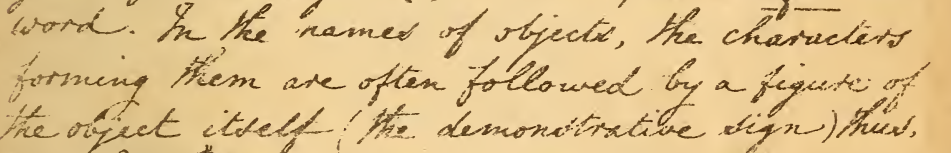 word. In the names of objects, the characters
forming them are often followed by a figure of
the object itself (the demonstrative sign) thus.